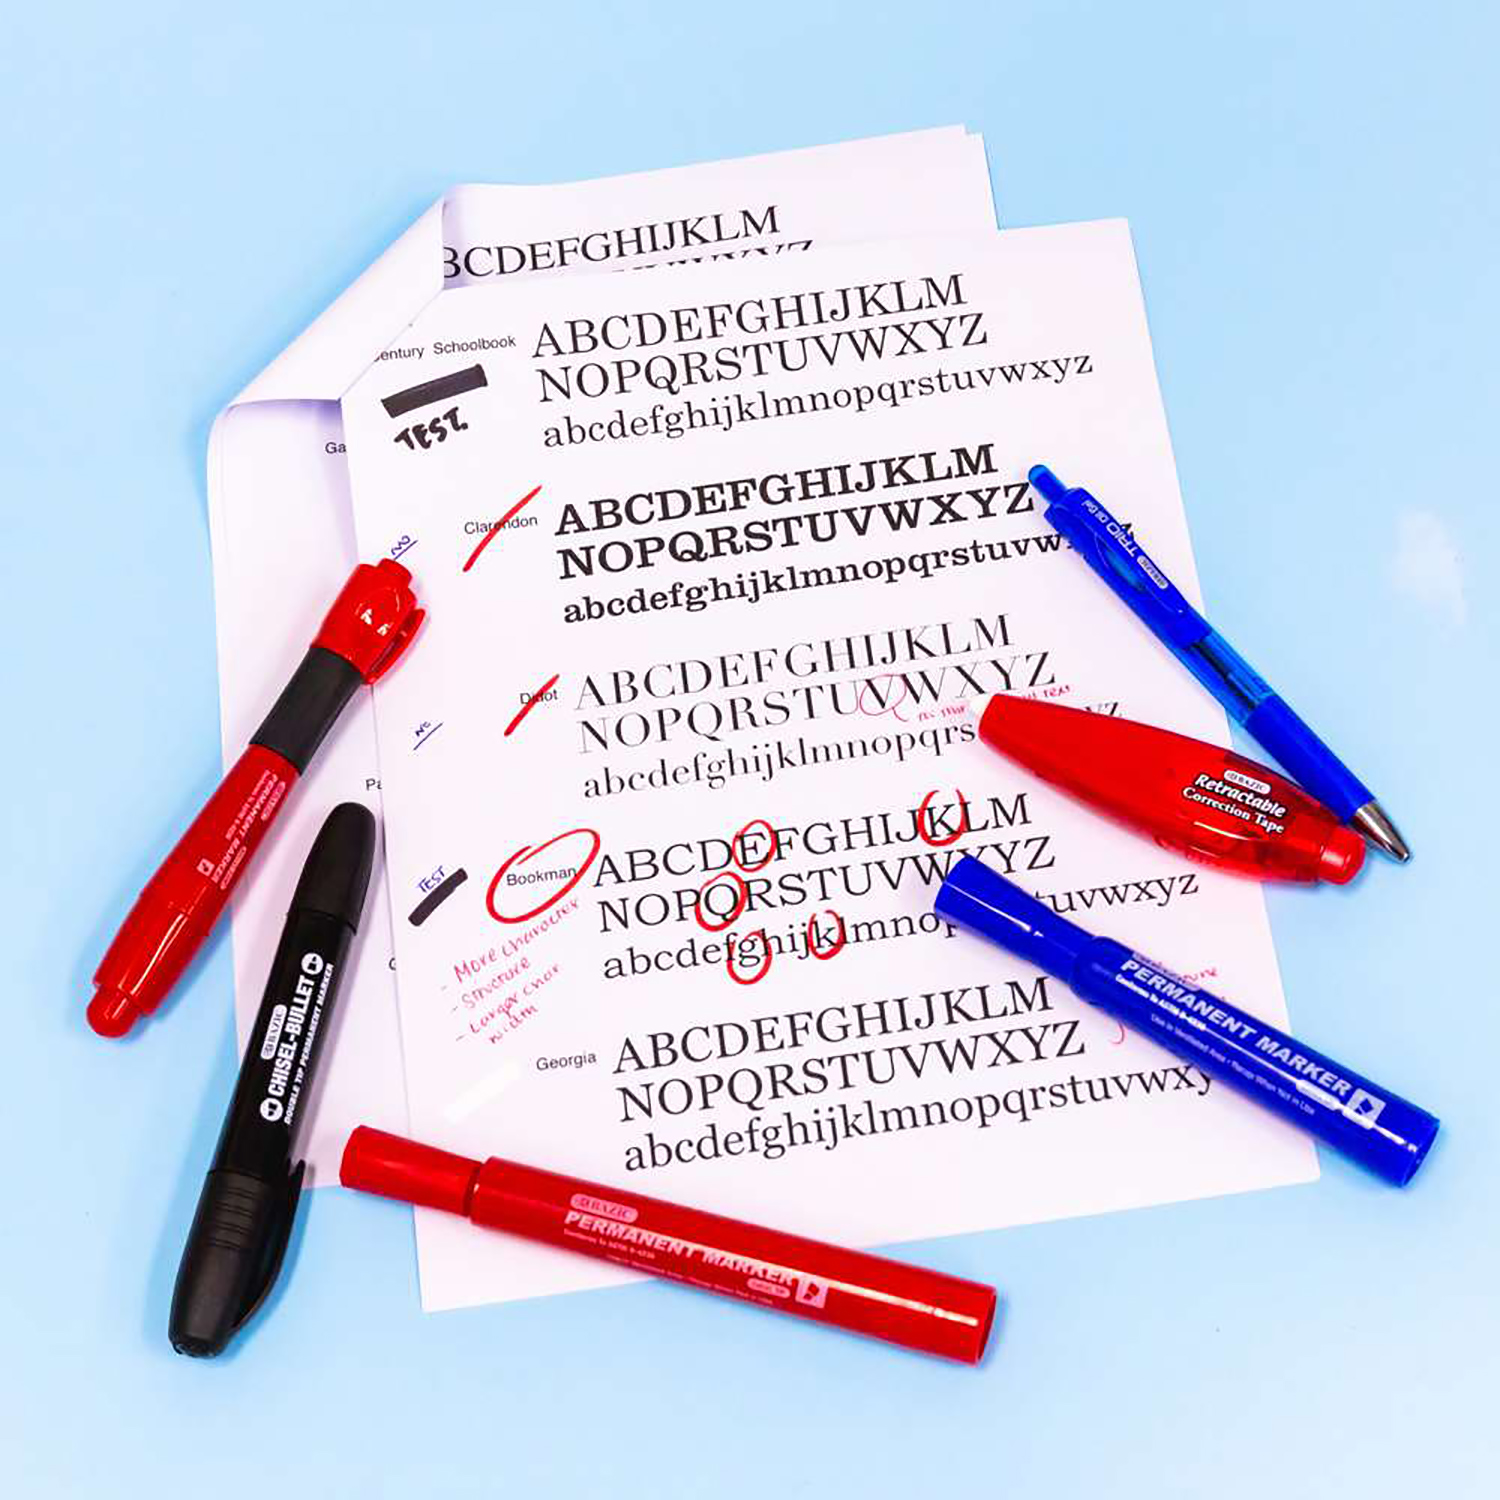 BCDEFGHIJKLM
entury Schoolbook
ABCDEFGHIJKLM
NOPQRSTUVWXYZ
abcdefghijklmnopqrstuvwxyz
TEST.
Ga
Clarendon
ABCDEFGHIJKLM
NOPQRSTUVWXYZ
abcdefghijklmnopqrstuvw
NO
Didot
ABCDEFGHIJKLM
NOPQRSTUVWXYZ
abcdefghijklmnopqrs
YZ
Pa
Bookman
ABCDEFGHIJKLM
NOPQRSTUVWXYZ
abcdefghijklmnop
uvwxyz
TEST
- More character
- Structure
- Larger char
width
Georgia
ABCDEFGHIJKLM
NOPQRSTUVWXYZ
abcdefghijklmnopqrstuvwxy
BAZIC
TRIO Oil Gel
BAZIC
Retractable
Correction Tape
PERMANENT MARKER
BAZIC
PERMANENT MARKER
BAZIC
CHISEL-BULLET
DOUBLE TIP PERMANENT MARKER
BAZIC
PERMANENT MARKER